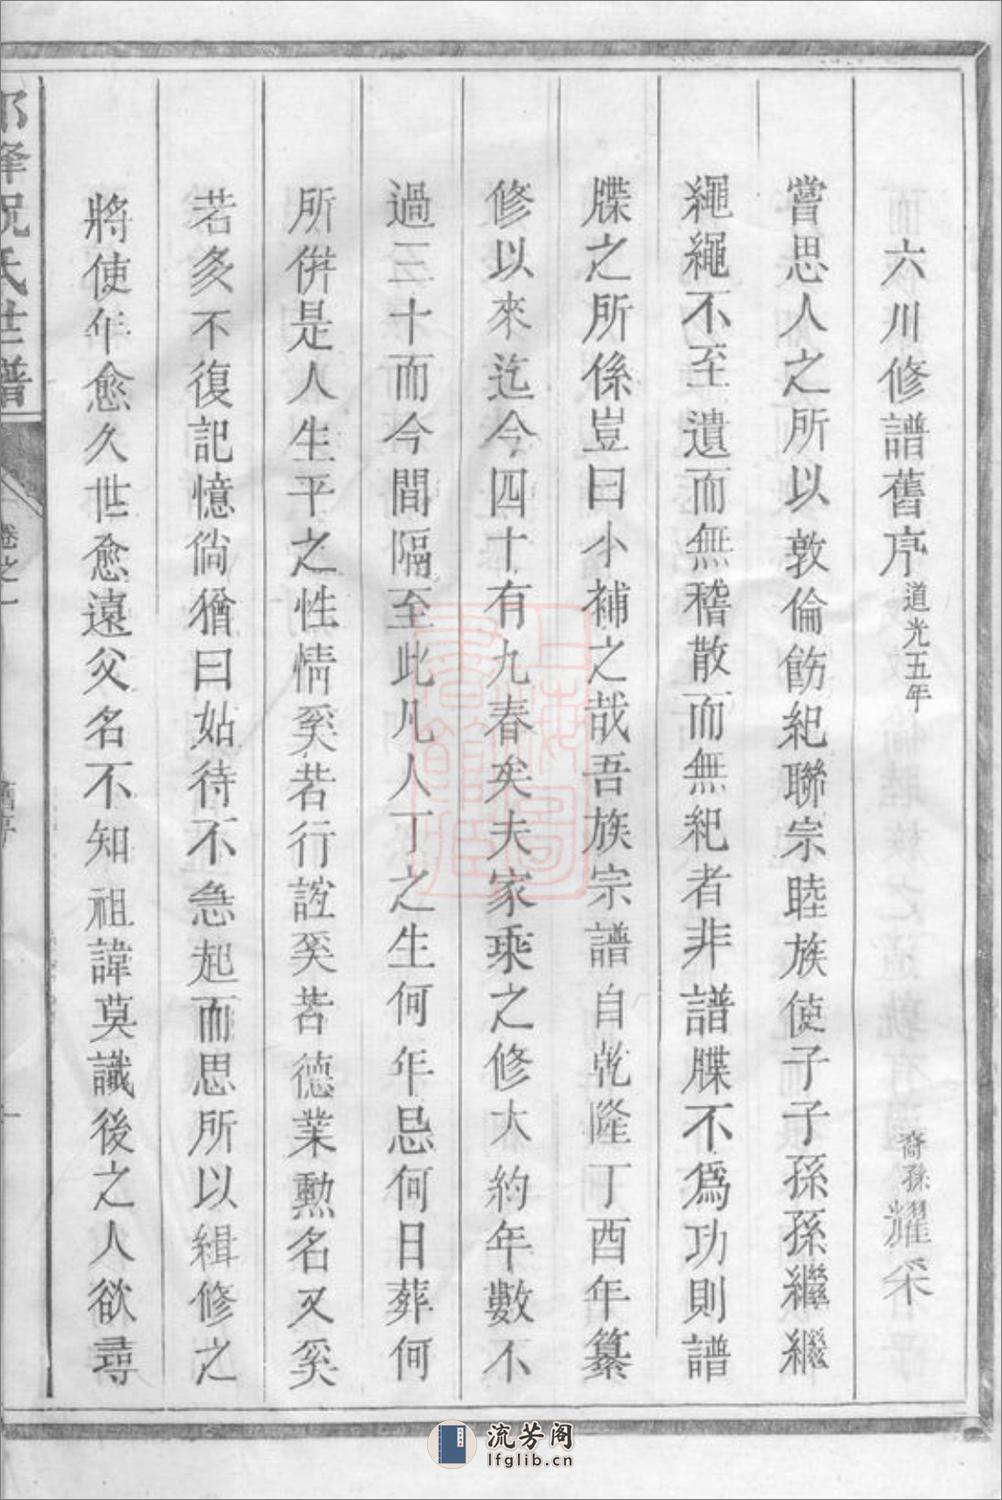 六川修譜舊序道光五年 裔孫耀采
嘗思人之所以敦倫飭紀聯宗睦族使子子孫孫繼繼
繩繩不至遺而無稽散而無紀者非譜牒不爲功則譜
牒之所係豈曰小補之哉吾族宗譜自乾隆丁酉年纂
修以來迄今四十有九春矣夫家乘之修大約年數不
過三十而今間隔至此凡人丁之生何年忌何日葬何
所倂是人生平之性情奚若行誼奚若德業勲名又奚
若多不復記憶倘猶曰姑待不急起而思所以緝修之
將使年愈久世愈遠父名不知祖諱莫識後之人欲尋
峰祝氏世譜 卷之一 舊序 一
上海圖書館藏
流芳阁
lfglib.cn